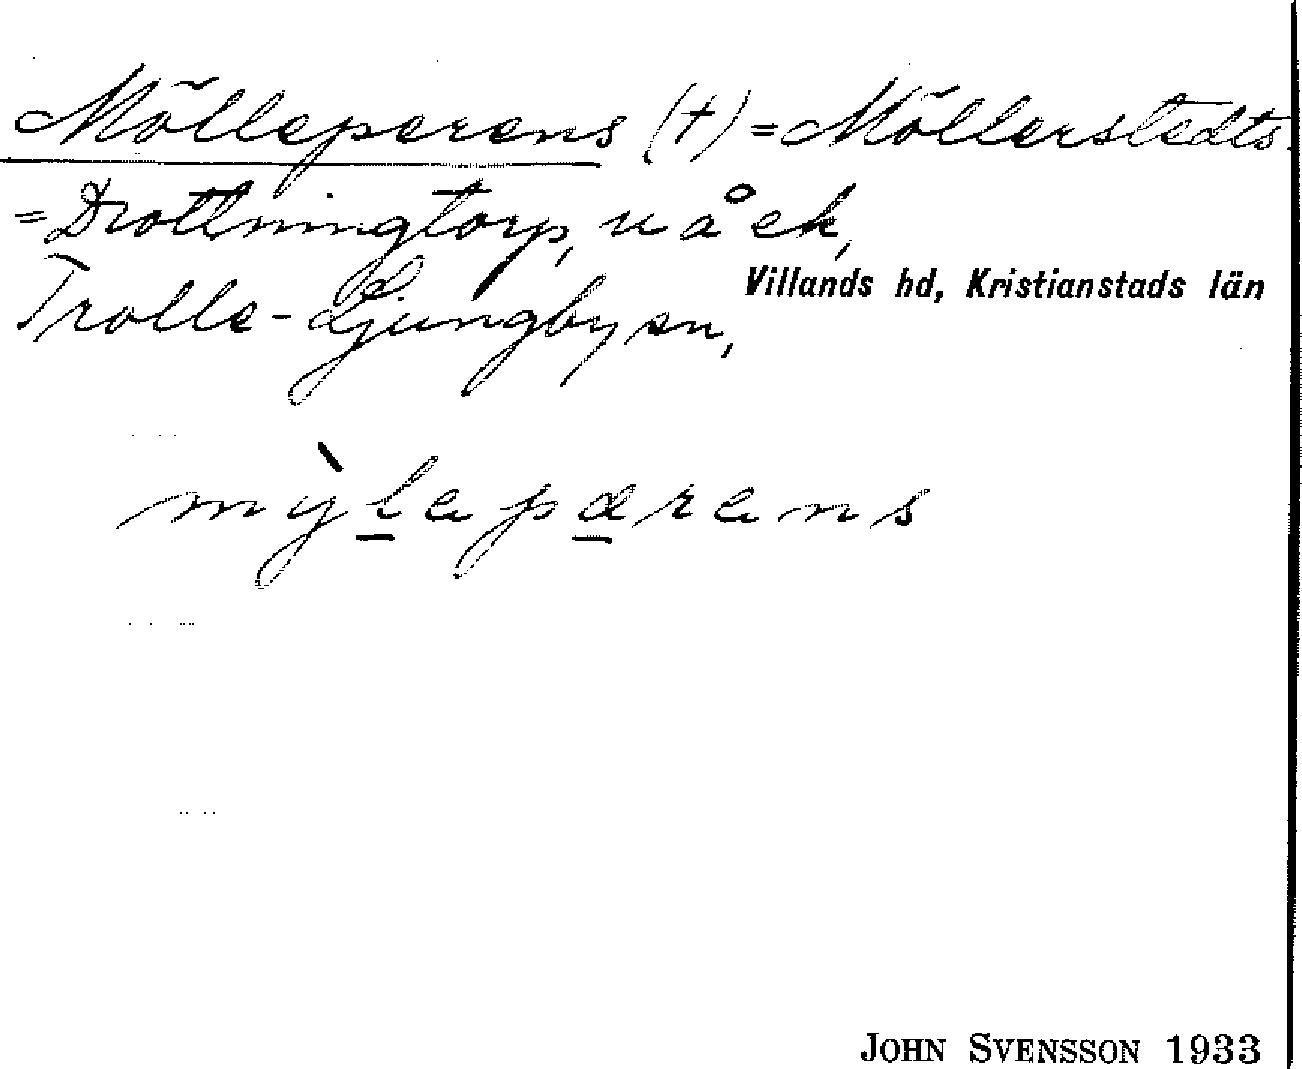 Mölleperens (†) = Möllerstedts
= Drottningtorp, u å ek,
Trolle-Ljungby sn,
Villands hd, Kristianstads län
mỳlaparans
JOHN SVENSSON 1933